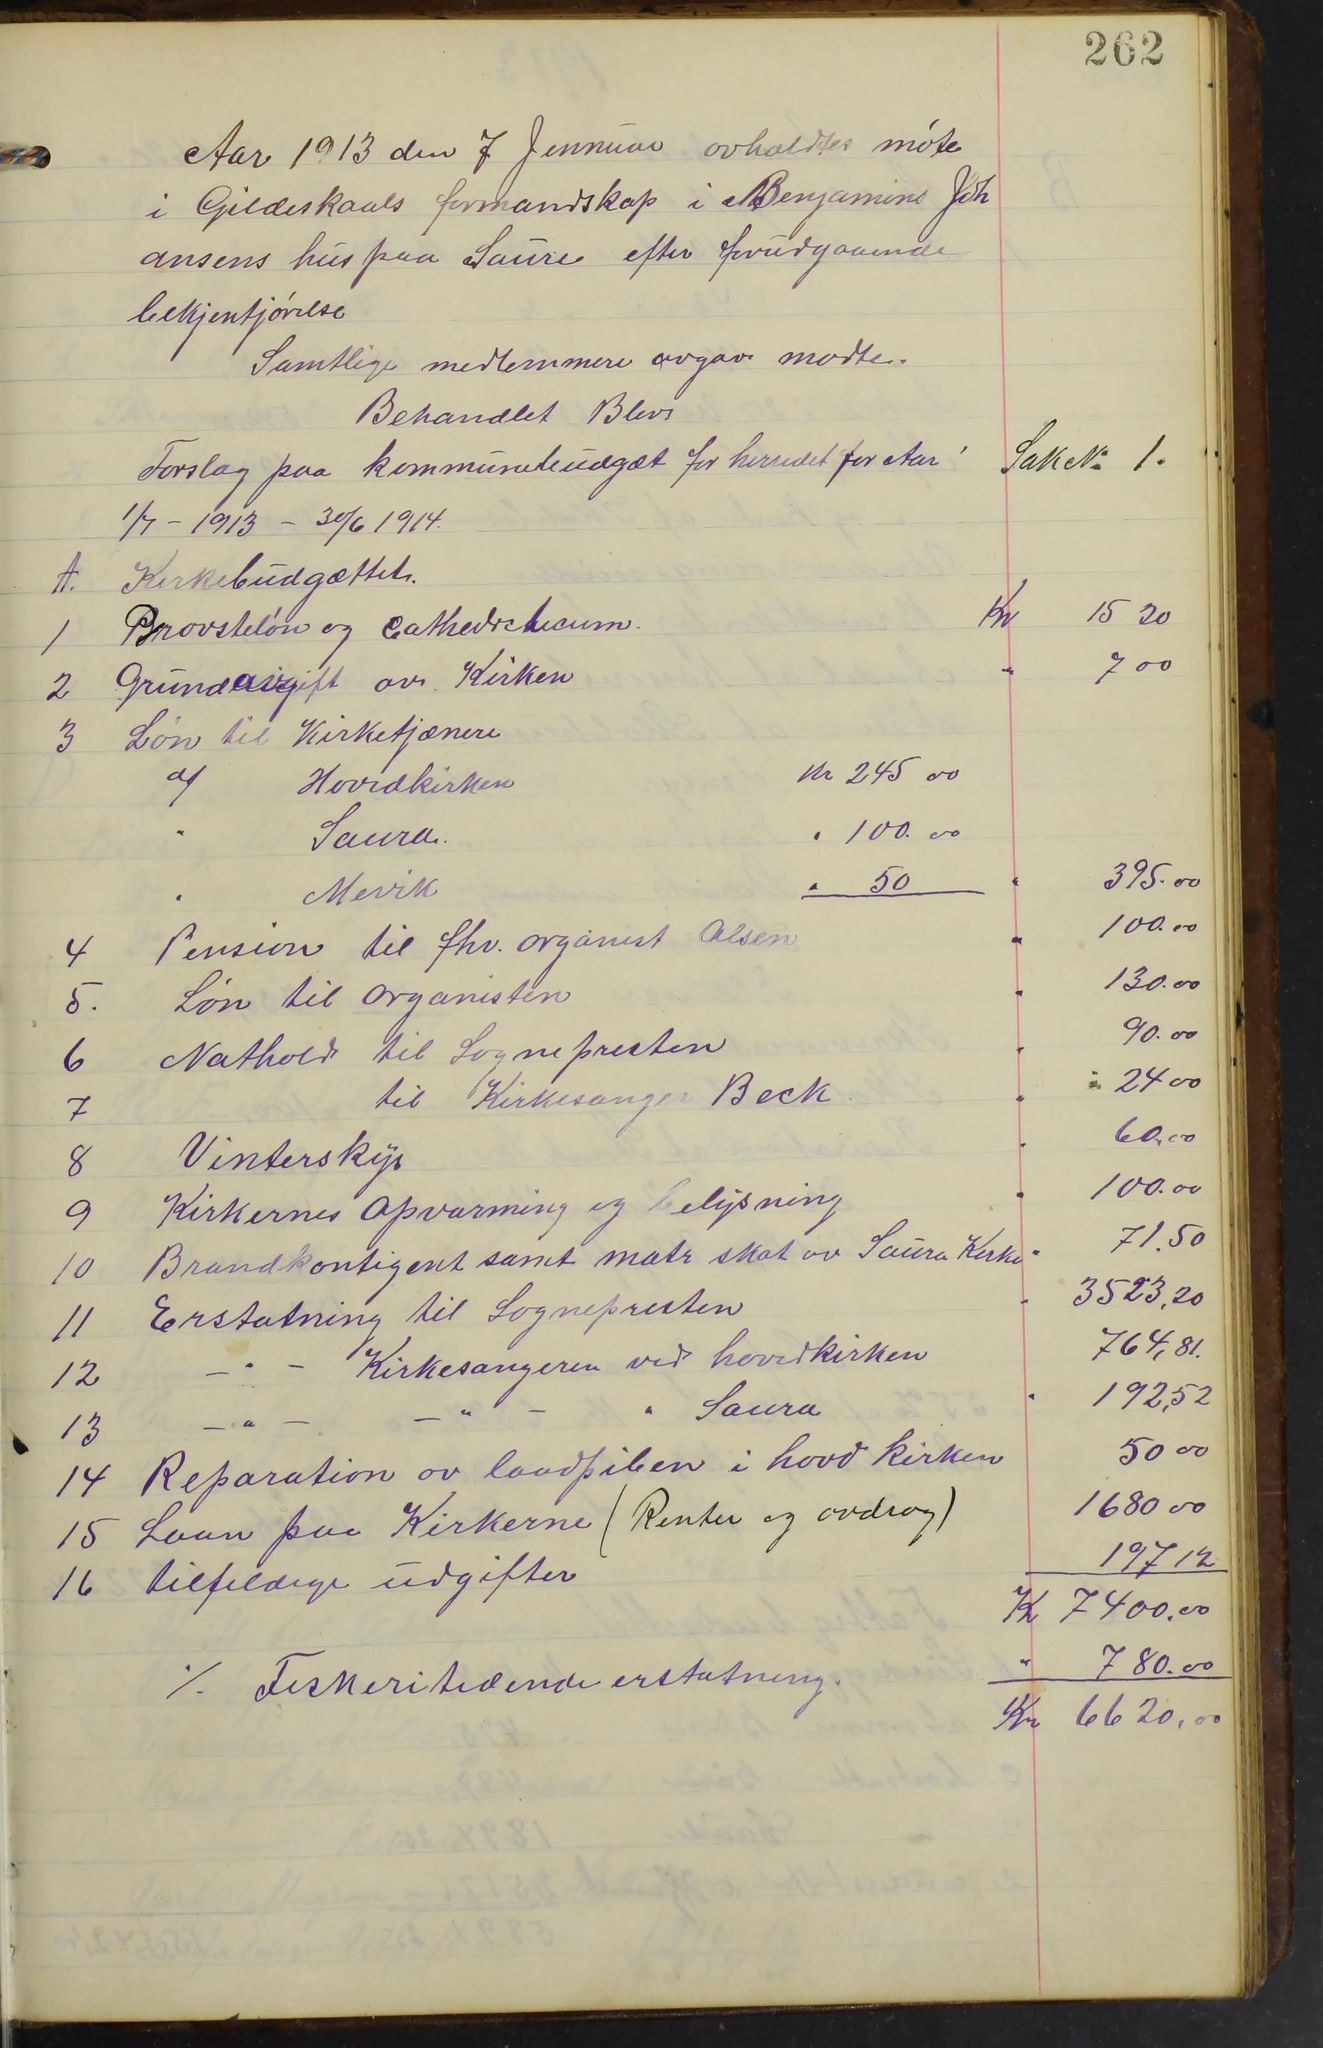 262
Aar 1913 den 7 Jennuar avholdtes møte
i Gildeskaals formandskap i Benjamins Joh
ansens hus paa Saura efter forudgaaende
bekjentjørelse
Samtlige medlemmere avgav mødte.
Behandlet Blev
Forslag paa kommunebudgæt for herredet for Aar Sak No 1.
1/7 - 1913 - 30/6 1914.
A. Kirkebudgættet.
1 Provsteløn og Cathedraticum. Kr 15 20
2 Grundavgift av Kirken " 7 00
3 Løn til Kirketjænere
af Hovedkirken Kr 245 00
" Saura. " 100.00
" Mevik " 50 " 395.00
4 Pension til fhv. organist Olsen " 100.00
5. Løn til organisten " 130.00
6 Nathold til Sognepresten " 90.00
7 til Kirkesanger Beck " 24 00
8 Vinterskys " 60.00
9 Kirkernes Opvarming og belysning " 100.00
10 Brandkontigent samt matr skat av Saura Kirke " 71.50
11 Erstatning til Sognepresten " 3523,20
12 - " - Kirkesangeren ved hovedkirken 764,81.
13 - " - - " - " Saura " 192,52
14 Reparation av laadpiben i hovd kirken 50 00
15 Laan paa Kirkerne (Renter og avdrag) 1680 00
16 tilfeldige udgifter 197 12
Kr 7400.00
./. Fiskeritiedende erstatning. " 780.00
Kr 6620.00